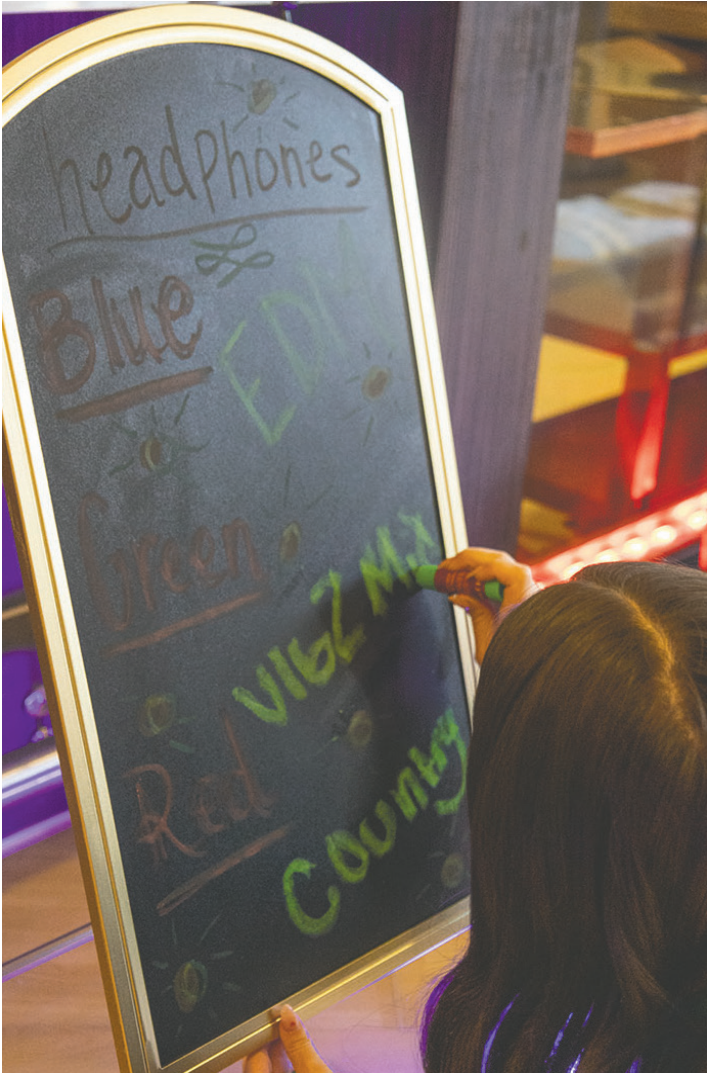 headphones
Blue
EDM
Green
Vibz Mix
Red
Country